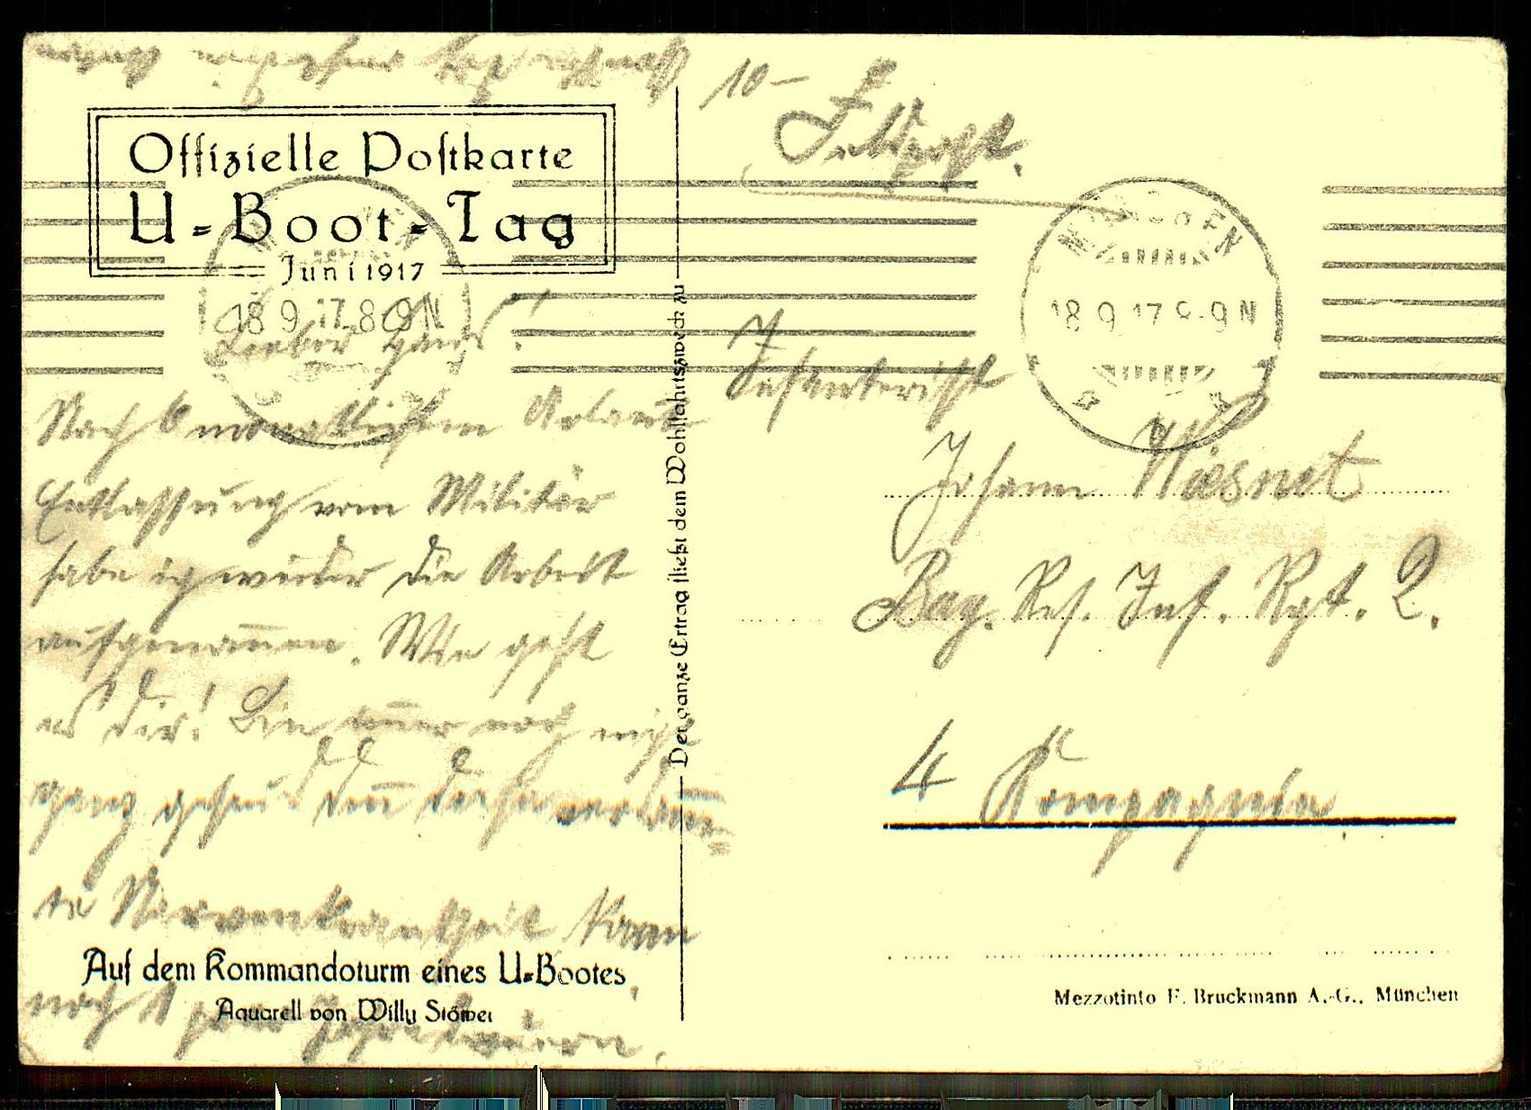 Offizielle Postkarte
U-Boot-Tag
Juni 1917
18 9 17 8-9 N
Lieber Hans!
Nach 6 monatlichem Urlaub
Entlassung vom Militär
habe ich wieder die Arbeit
aufgenom̅en. Wie geht
es dir! Bin im̅er noch nicht
ganz gesund den̅ diese verdam̅-
te Nervenkrankheit kann
noch 1 Jahr
Auf dem Kommandoturm eines U-Bootes
Aquarell von Willy Stöwer
Der ganze Ertrag fließt dem Wohlfahrtszweck zu
10-
Feldpost.
MÜNCHEN
18 9 17 8-9 N
Infanterist
Johann Wiesnet
Bay. Res. Inf. Rgt. 2.
4 Kompagnie
Mezzotinto F. Bruckmann A.-G., München